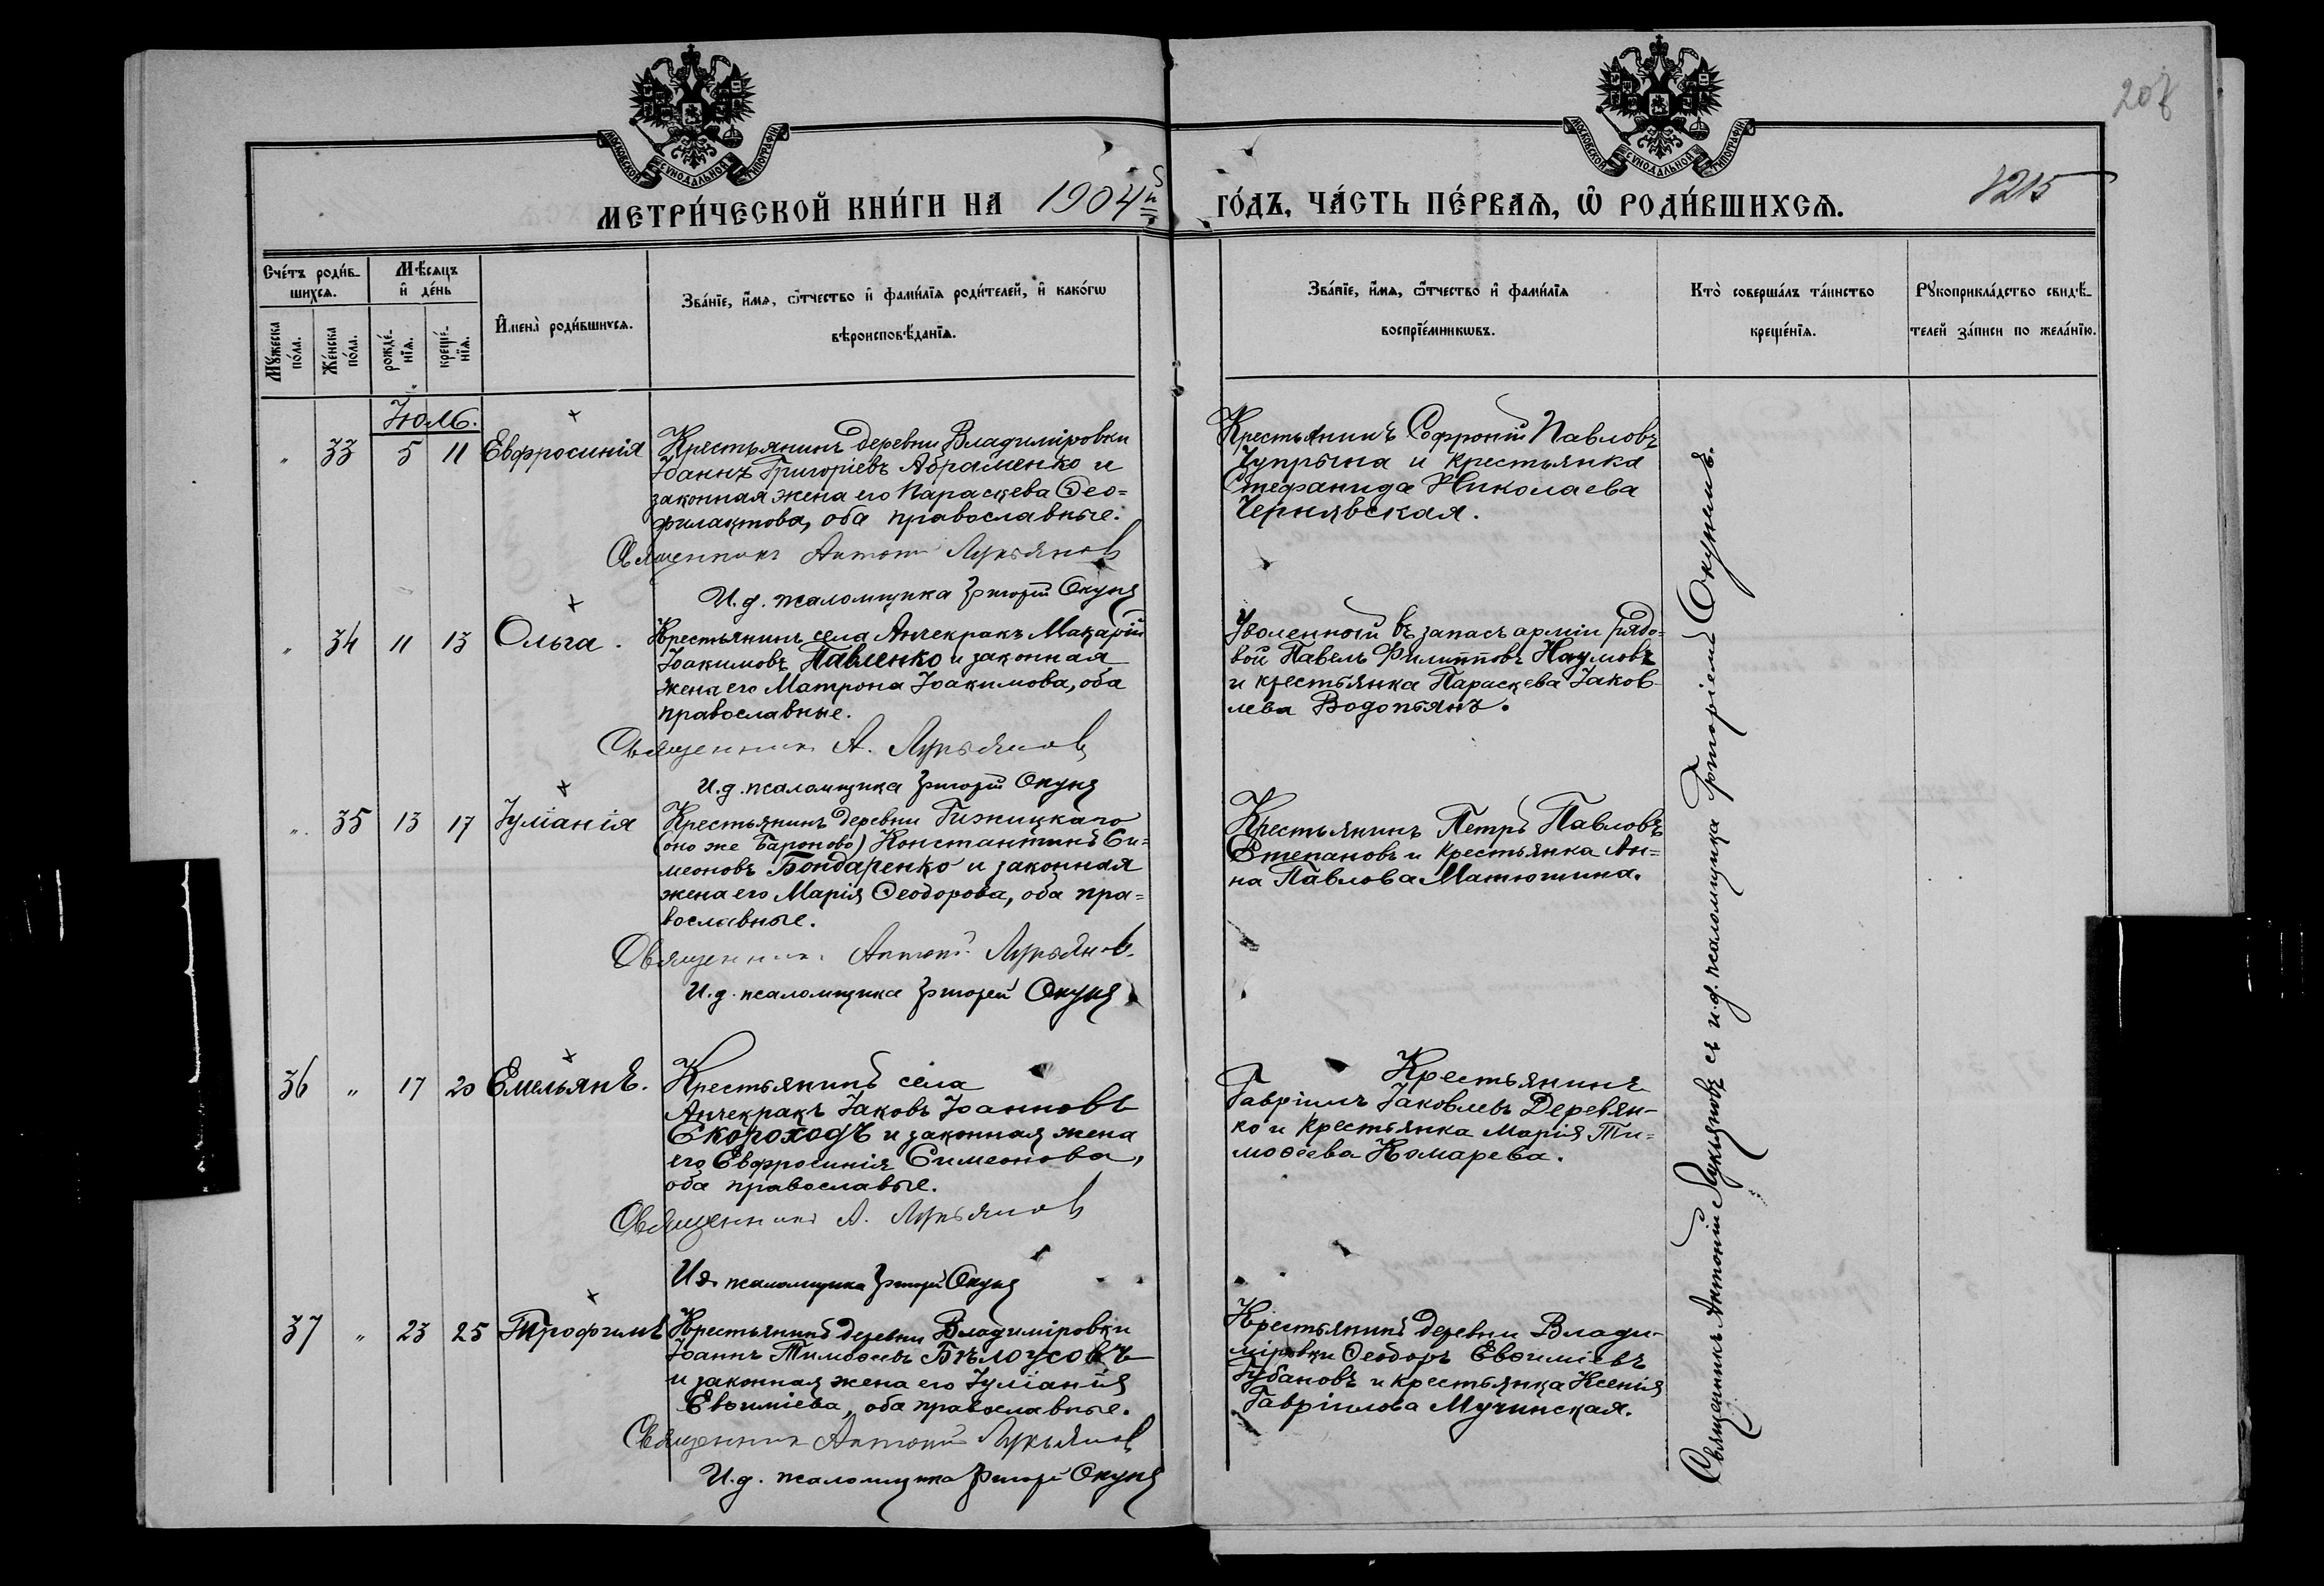 207
МОСКОВСКОЙ СУНОДАЛЬНОЙ ТИПОГРАФІИ
МОСКОВСКОЙ СУНОДАЛЬНОЙ ТИПОГРАФІИ
МЕТРИ́ЧЕСКОЙ КНИ́ГИ НА 1904й ГО́ДЪ, ЧА́СТЬ ПЕ́РВАѦ, Ѿ РОДИ́ВШИХСѦ.
1215
Сче́тъ роди́в-
шихсѧ.
Мꙋ́жеска
по́ла.
Же́нска
по́ла.
Мѣ́сѧцъ
и҆ де́нь
рожде́-
нїѧ.
креще́-
нїѧ.
И҆мена̀ роди́вшихсѧ.
Зва́нїе, и҆́мѧ, ѻ҆́тчество и҆ фами́лїѧ роди́телей, и҆ како́гѡ
вѣроисповѣ́данїѧ.
Зва́нїе, и҆́мѧ, ѻ҆́тчество и҆ фами́лїѧ
воспрїе́мникѡвъ.
Кто̀ соверша́лъ та́инство
креще́нїѧ.
Рꙋкоприкла́дство свидѣ́-
телей за́писи по жела́нїю.
Іюль.
" 33 5 11 Евфросинія
Крестьянинъ деревни Владиміровки
Іоаннъ Григоріевъ Абраменко и
законная жена его Параскева Ѳео=
филактова, оба православные.
Священникъ Антоній Лукьянов
И.д. псаломщика Григорій Окунь
Крестьянинъ Софроній Павловъ
Чупрына и крестьянка
Стефанида Николаева
Чернявская.
" 34 11 13 Ольга.
Крестьянинъ села Анчекракъ Макарій
Іоакимовъ Павленко и законная
жена его Матрона Іоакимова, оба
православные.
Священникъ А. Лукьянов
И.д. псаломщика Григорій Окунь
Уволенный въ запасъ арміи рядо=
вой Павелъ Филипповъ Наумовъ
и крестьянка Параскева Іаков-
лева Водопьянъ.
" 35 13 17 Іуліанія
Крестьянинъ деревни Гижицкаго
(оно же Бароново) Константинъ Си=
меоновъ Бондаренко и законная
жена его Марія Ѳеодорова, оба пра=
вославные.
Священникъ Антоній Лукьянов.
И.д. псаломщика Григорій Окунь
Крестьянинъ Петръ Павловъ
Степановъ и крестьянка Ан=
на Павлова Матюшина.
36 " 17 20 Емельянъ.
Крестьянинъ села
Анчекракъ Іаковъ Іоанновъ
Скороходъ и законная жена
его Евфросинія Симеонова,
оба православые.
Священникъ А. Лукьянов
И.д. псаломщика Григорій Окунь
Крестьянинъ
Гавріилъ Іаковлевъ Деревян-
ко и крестьянка Марія Ти=
моѳеева Комарева.
37 " 23 25 Трофимъ
Крестьянинъ деревни Владиміровки
Іоаннъ Тимоѳеевъ Бѣлоусовъ
и законная жена его Іуліанія
Евѳиміева, оба православные.
Священникъ Антоній Лукьянов
И.д. псаломщика Григорій Окунь
Крестьянинъ деревни Влади-
міровки Ѳеодоръ Евѳиміевъ
Губановъ и крестьянка Ксенія
Гавріилова Мучинская.
Священникъ Антоній Лукьяновъ съ и.д. псаломщика Григоріемъ Окунемъ.